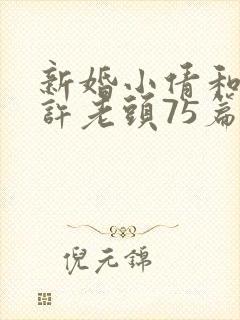 新婚小倩和
許老頭75篇
倪元錦